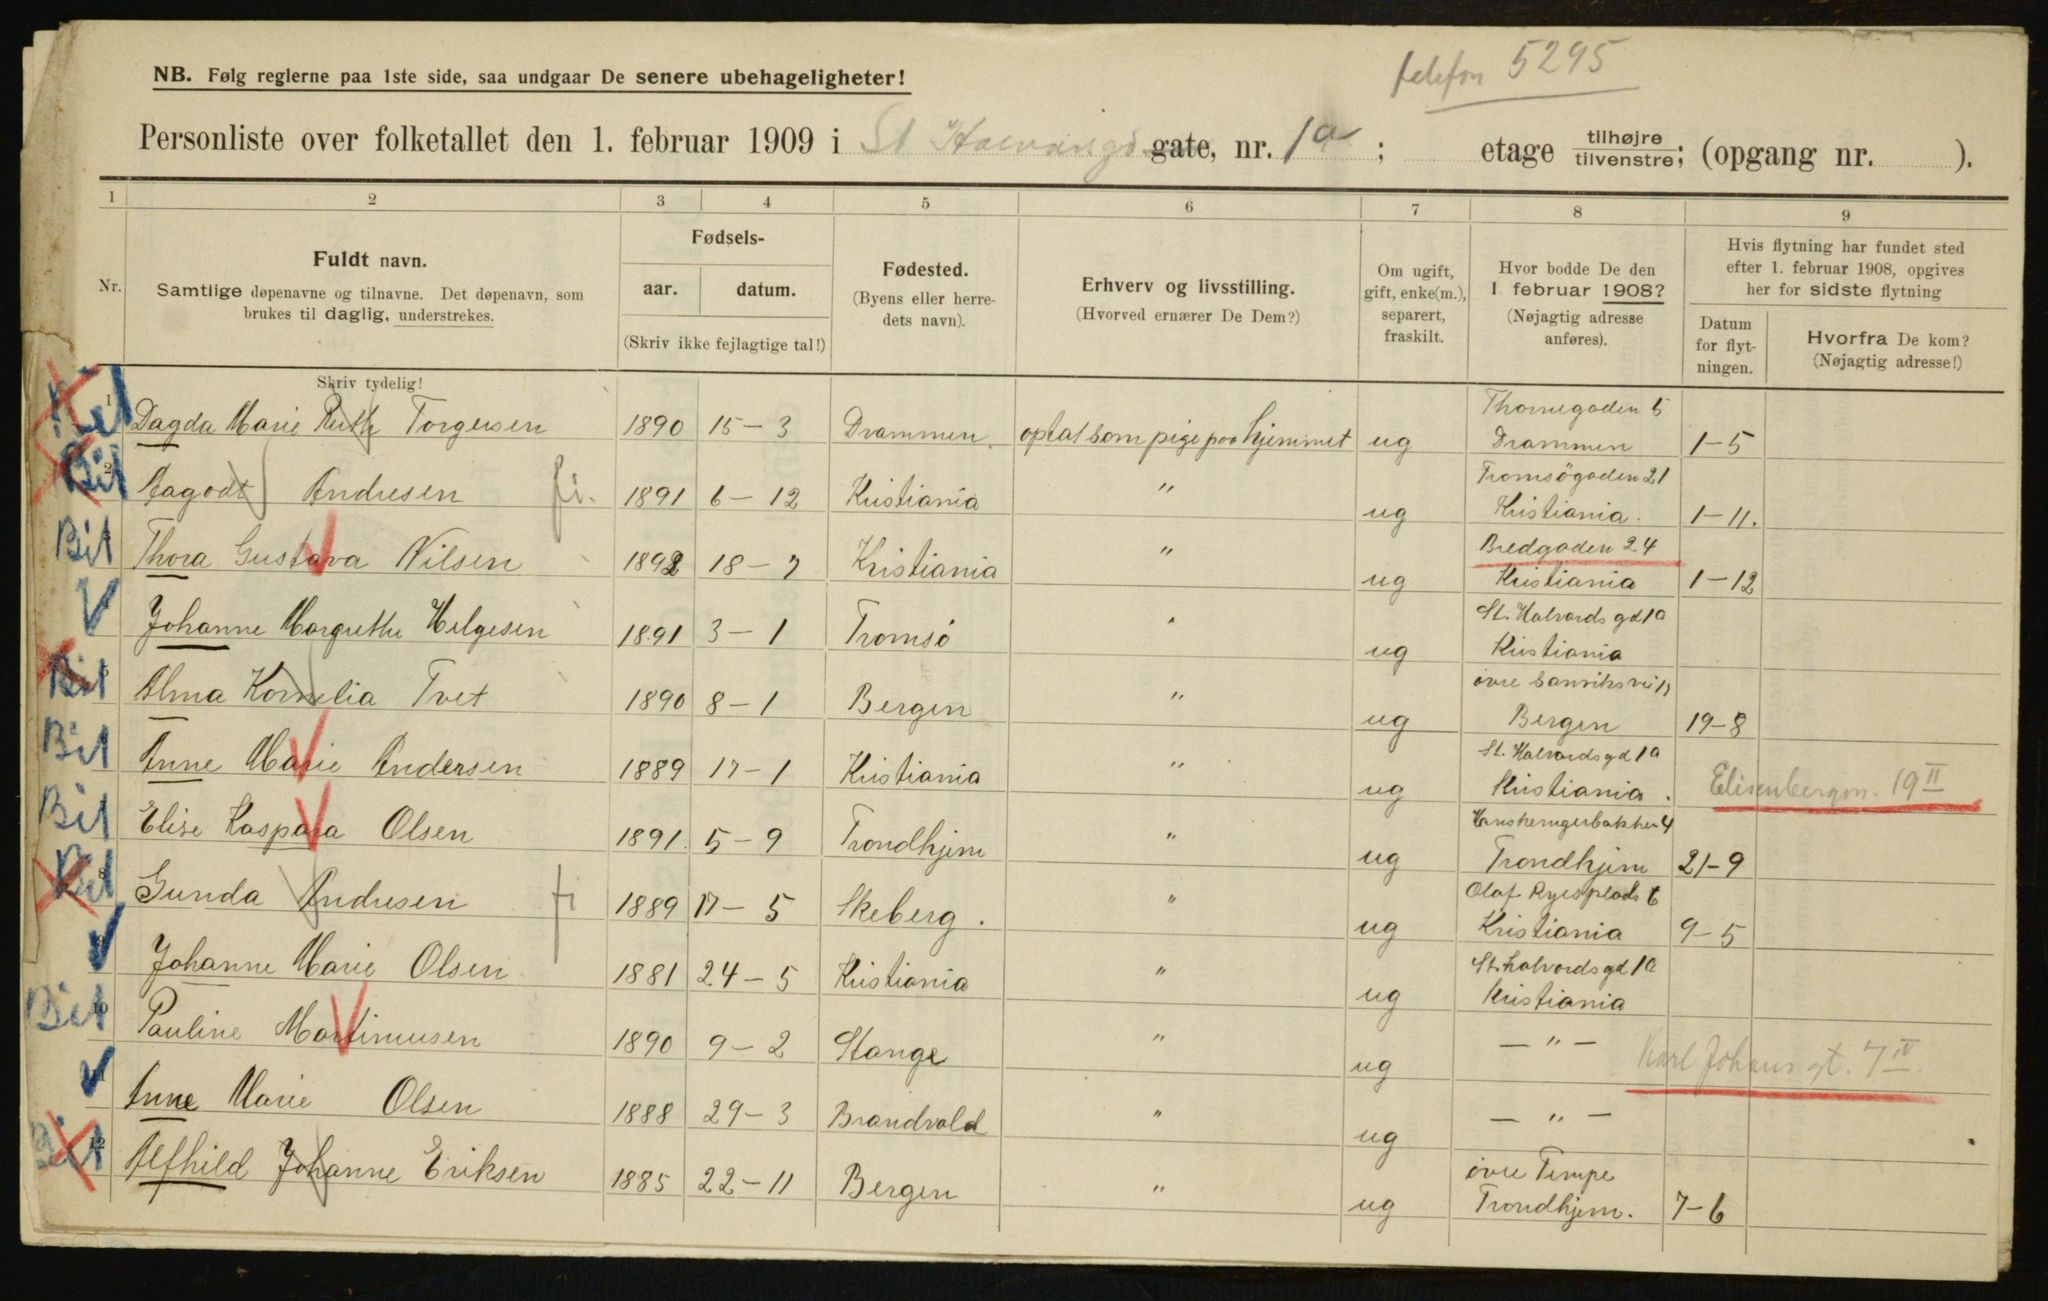 telefon 5295
NB. Følg reglerne paa 1ste side, saa undgaar De senere ubehageligheter!
Personliste over folketallet den 1. februar 1909 i St gate, nr. 1a ; etage tilhøjre tilvenstre; (opgang nr. ).
1 2 3 4 5 6 7 8 9
Nr.
Fuldt navn.
Samtlige døpenavne og tilnavne. Det døpenavn, som
brukes til daglig, understrekes.
Skriv tydelig!
Fødsels-
aar. datum.
(Skriv ikke fejlagtige tal!)
Fødested.
(Byens eller herre-
dets navn).
Erhverv og livsstilling.
(Hvorved ernærer De Dem?)
Om ugift,
gift, enke(m.),
separert,
fraskilt.
Hvor bodde De den
1 februar 1908?
(Nøjagtig adresse
anføres).
Hvis flytning har fundet sted
efter 1. februar 1908, opgives
her for sidste flytning
Datum
for flyt-
ningen.
Hvorfra De kom?
(Nøjagtig adresse!)
Bil 1 Dagda Marie Ruth Torgersen 1890 15-3 Drammen. optat som pige paa hjemmet ug Thornegaden 5
Drammen 1-5
Bil 2 Aagodt Andresen fi. 1891 6-12 Kristiania " ug Tromsögaden 21
Kristiania. 1-11.
Bil Thora Gustava Nilsen 1892 18-7 Kristiania " ug Bredgaden 24
Kristiania 1-12
Johanne Margrethe Helgesen 1891 3-1 Tromsö " ug St. Halvards gd 1a
Kristiania
Bil 5 Alma Kornelia Tvet 1890 8-1 Bergen " ug övre
Bergen 19-8
Bil Anne Marie Andersen 1889 17-1 Kristiania " ug St. Halvards gd 1a
Kristiania. Elisenbergvn. 19 II
Bil Elise Kaspara Olsen 1891. 5-9 Trondhjem " ug
Trondhjem 21-9
Bil 8 Gunda Andresen fi 1889 17-5 Skeberg. " ug Olaf Ryesplads 6
Kristiania 9-5
9 Johanne Marie Olsen 1881 24-5 Kristiania " ug St. halvards gd 1a
Kristiania
Bil 10 Pauline Martinusen 1890 9-2 Stange " ug — " —
Karl Johans gt. 7 IV.
11 Anne Marie Olsen 1888 29-3 Brandvold " ug — " —
Bil 12 Alfhild Johanne Eriksen 1885 22-11 Bergen " ug övre Tempe
Trondhjem. 7-6